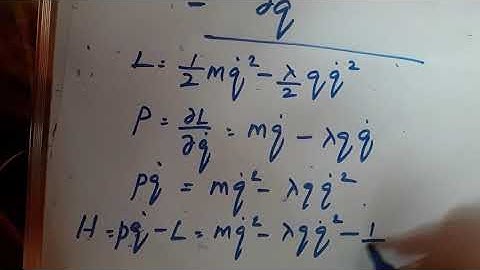 = ∂q̇
L = 1/2 mq̇² - λ/2 qq̇²
P = ∂L/∂q̇ = mq̇ - λqq̇
pq̇ = mq̇² - λqq̇²
H = pq̇ - L = mq̇² - λqq̇² - 1